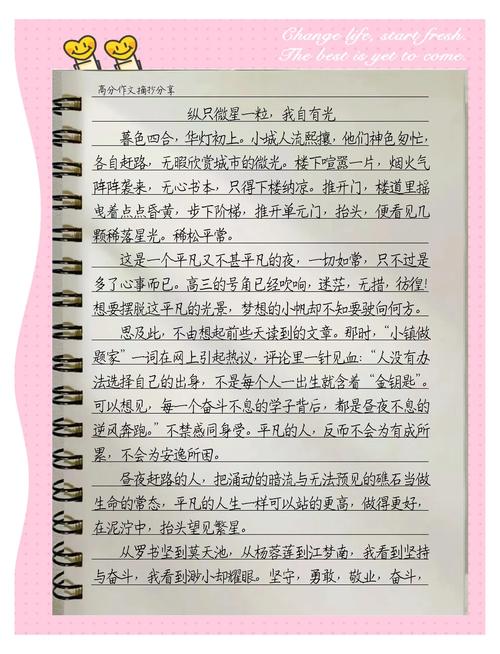 Change life, start fresh.
The best is yet to come.
高分作文摘抄分享
纵只微星一粒，我自有光
暮色四合，华灯初上。小城人流熙攘，他们神色匆忙，
各自赶路，无暇欣赏城市的微光。楼下喧嚣一片，烟火气
阵阵袭来，无心书本，只得下楼纳凉。推开门，楼道里摇
曳着点点昏黄，步下阶梯，推开单元门，抬头，便看见几
颗稀落星光。稀松平常。
这是一个平凡又不甚平凡的夜，一切如常，只不过是
多了心事而已。高三的号角已经吹响，迷茫，无措，彷徨！
想要摆脱这平凡的光景，梦想的小帆却不知要驶向何方。
思及此，不由想起前些天读到的文章。那时，“小镇做
题家”一词在网上引起热议，评论里一针见血：“人没有办
法选择自己的出身，不是每个人一出生就含着“金钥匙”。
可以想见，每一个奋斗不息的学子背后，都是昼夜不息的
逆风奔跑。”不禁感同身受。平凡的人，反而不会为有成所
累，不会为安逸所困。
昼夜赶路的人，把涌动的暗流与无法预见的礁石当做
生命的常态，平凡的人生一样可以站的更高，做得更好，
在泥泞中，抬头望见繁星。
从罗书坚到莫天池，从杨蓉莲到江梦南，我看到坚持
与奋斗，我看到渺小却耀眼。坚守，勇敢，敬业，奋斗，